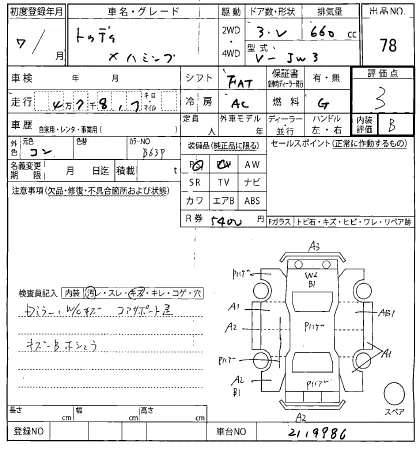 初度登録年月 車名・グレード 駆動 ドア数・形状 排気量 出品NO.
7/ 月 トゥデイ 2WD 3.V 660cc
×ハミング 4WD 型式 V-JW3 78
車検 年 月 シフト FAT 保証書 有・無 評価点
走行 4万7千8,1 キロ マイル 冷房 AC 燃料 G 3
車歴 自家用・レンタ・事業用( ) 定員 人 外車モデル 年 ディーラー 並行 ハンドル 左・右 内装評価 B
外色 元色 コン 色替 カラーNO B63P 装備品(純正品に限る) セールスポイント(正常に作動するもの)
名義変更期限 月 日迄 積載 t PS PW AW
注意事項(欠品・修復・不具合箇所および状態) SR TV ナビ
カワ エアB ABS
R券 5400 Fガラス トビ石・キズ・ヒビ・ワレ・リペア跡
A3
W2
B1
A1 AB1
A2 A1
A2
B1
A2
検査員記入 内装 汚レ・スレ・キズ・キレ・コゲ・穴
コアサポート
スペア
長さ cm 幅 cm 高さ cm
登録NO 車台NO 2119986